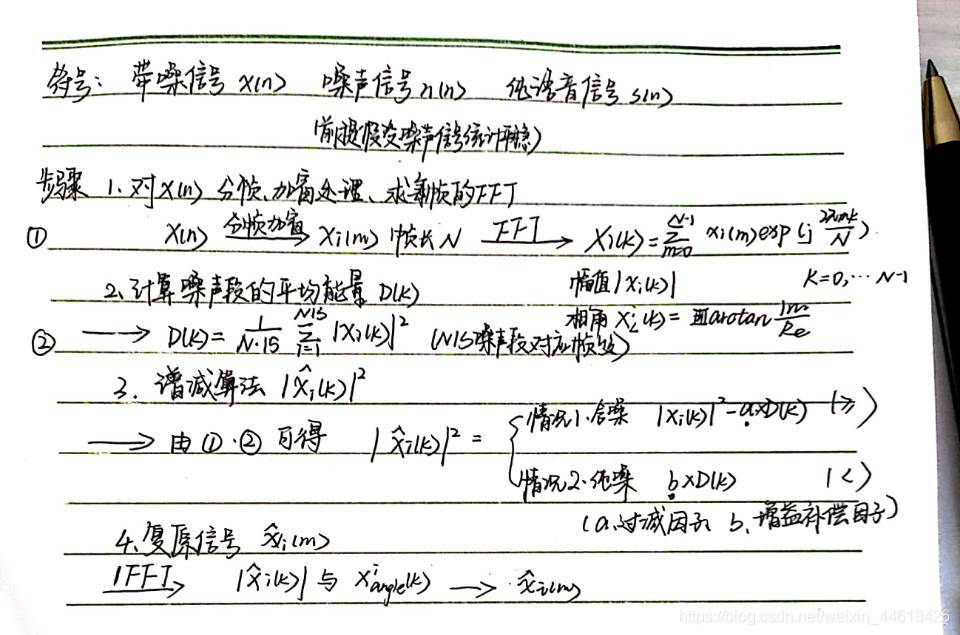 符号: 带噪信号 x(n) 噪声信号 n(n) 纯语音信号 s(n)
(前提假设噪声信号统计平稳)
步骤 1. 对x(n) 分帧、加窗处理、求每帧的FFT
① x(n) 分帧加窗→ xi(m) 帧长N FFT→ Xi(k)=∑_{m=0}^{N-1} xi(m)exp(j 2πmk/N)
2. 计算噪声段的平均能量 D(k) 幅值|Xi(k)| k=0,…N-1
相角 Xi(k)= arctan Im/Re
② → D(k)= 1/N·IS ∑_{i=1}^{NIS} |Xi(k)|² (NIS噪声段对应帧数)
3. 谱减算法 |X̂i(k)|²
→ 由①·②可得 |X̂i(k)|² = { 情况1·含噪 |Xi(k)|²-a×D(k) (≥)
情况2·纯噪 b×D(k) (<)
(a.过减因子 b.增益补偿因子)
4. 复原信号 x̂i(m)
IFFT→ |X̂i(k)| 与 X^i_angle(k) → x̂i(m)
https://blog.csdn.net/weixin_44618426